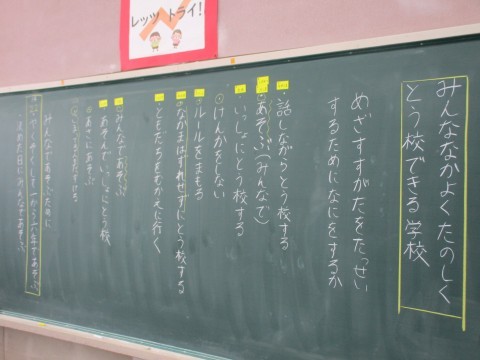 レッツ トライ!
みんななかよくたのしく
とう校できる学校
めざすすがたをたっせい
するためになにをするか
話しながらとう校する
あそぶ(みんなで)
いっしょにとう校する
けんかをしない
ルールをまもる
なかまはずれせずにとう校する
ともだちをむかえに行く
みんなであそぶ
あそんでいっしょにとう校
あさにあそぶ
みんなであそぶために
一から六年であそぶ
決めた日にみんなであそぶ